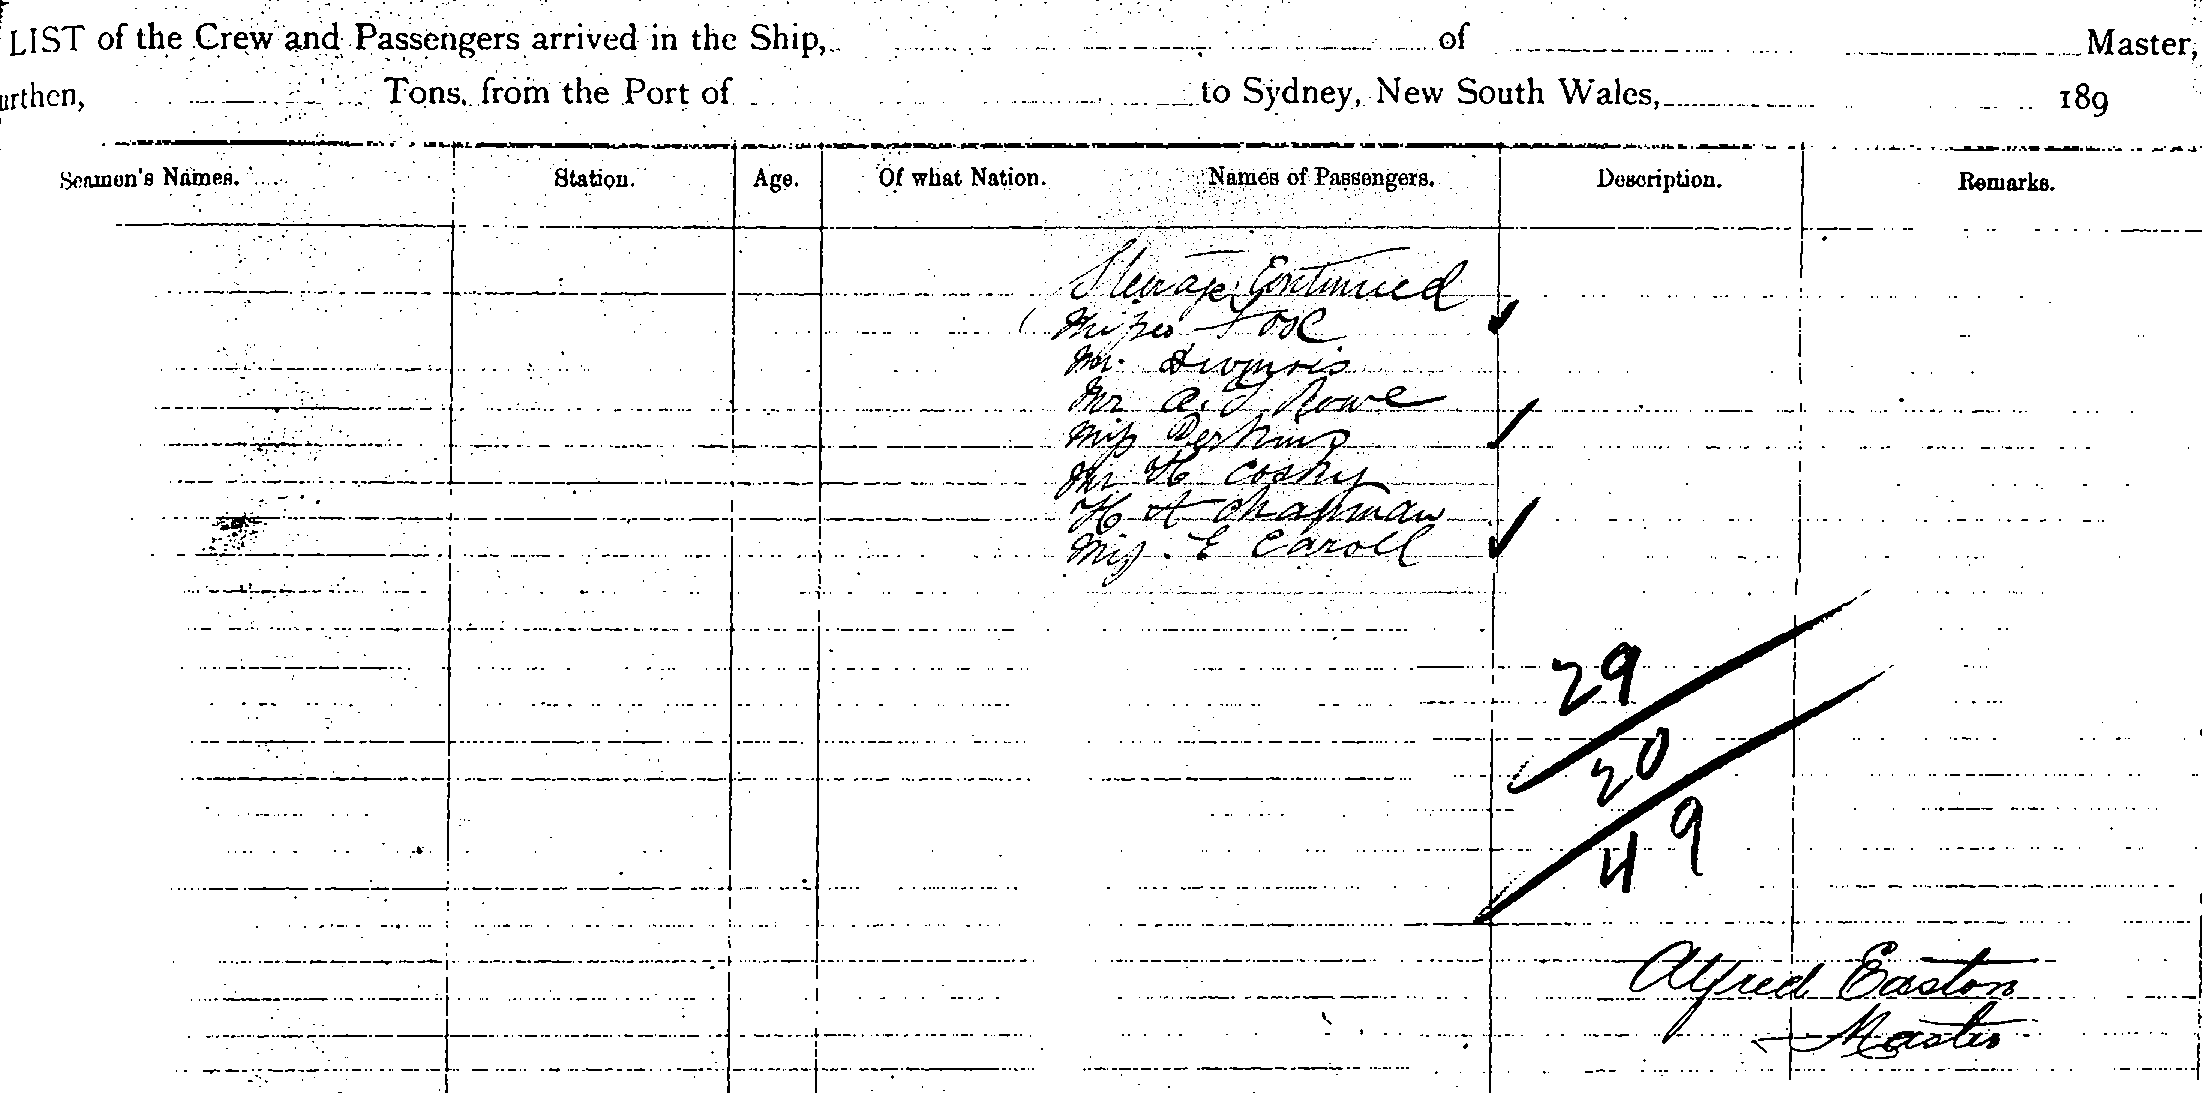 LIST of the Crew and Passengers arrived in the Ship, of Master,
urthen, Tons, from the Port of to Sydney, New South Wales, 189
Seamen's Names. Station. Age. Of what Nation. Names of Passengers. Description. Remarks.
Steerage Continued
Misses Fox
Mr.
Mr A. J Rowe
Miss Perkins
Mr H Cosky
H A Chapman
Miss. E Caroll
29
20
49
Alfred Easton
Master